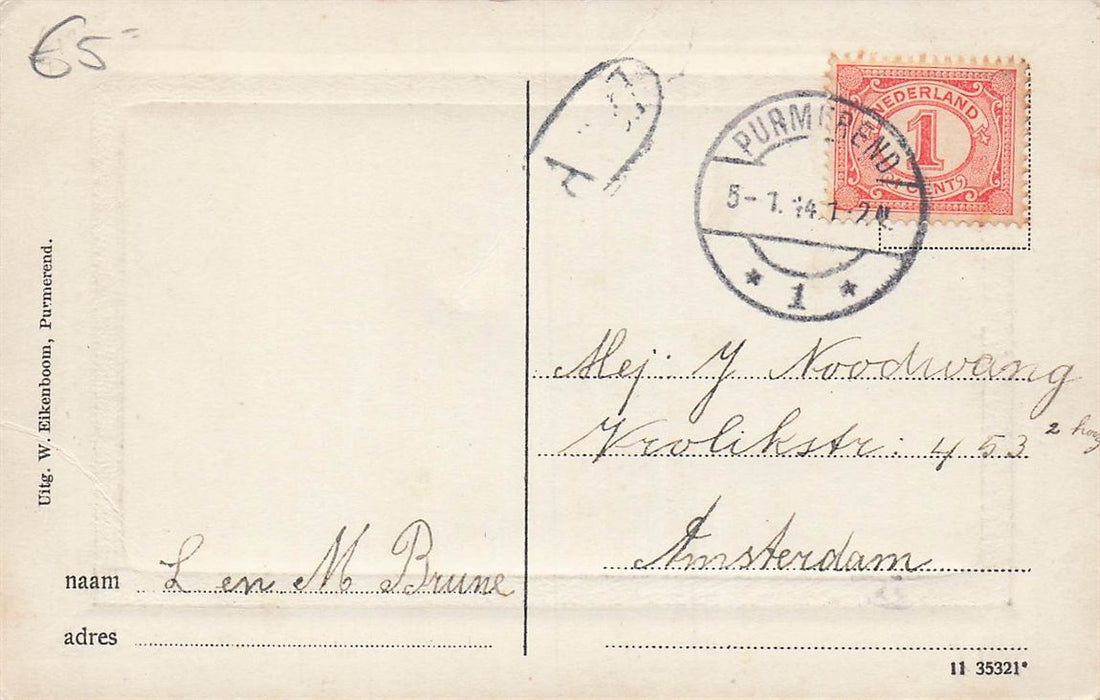 65-
NEDERLAND
1
CENT
PURMEREND
5-1.14.1-2N.
1
Uitg. W. Eikenboom, Purmerend.
Mej: J Noodwang
Vrolikstr: 453 2 hoog
Amsterdam
naam L en M Brune
adres
11 35321*